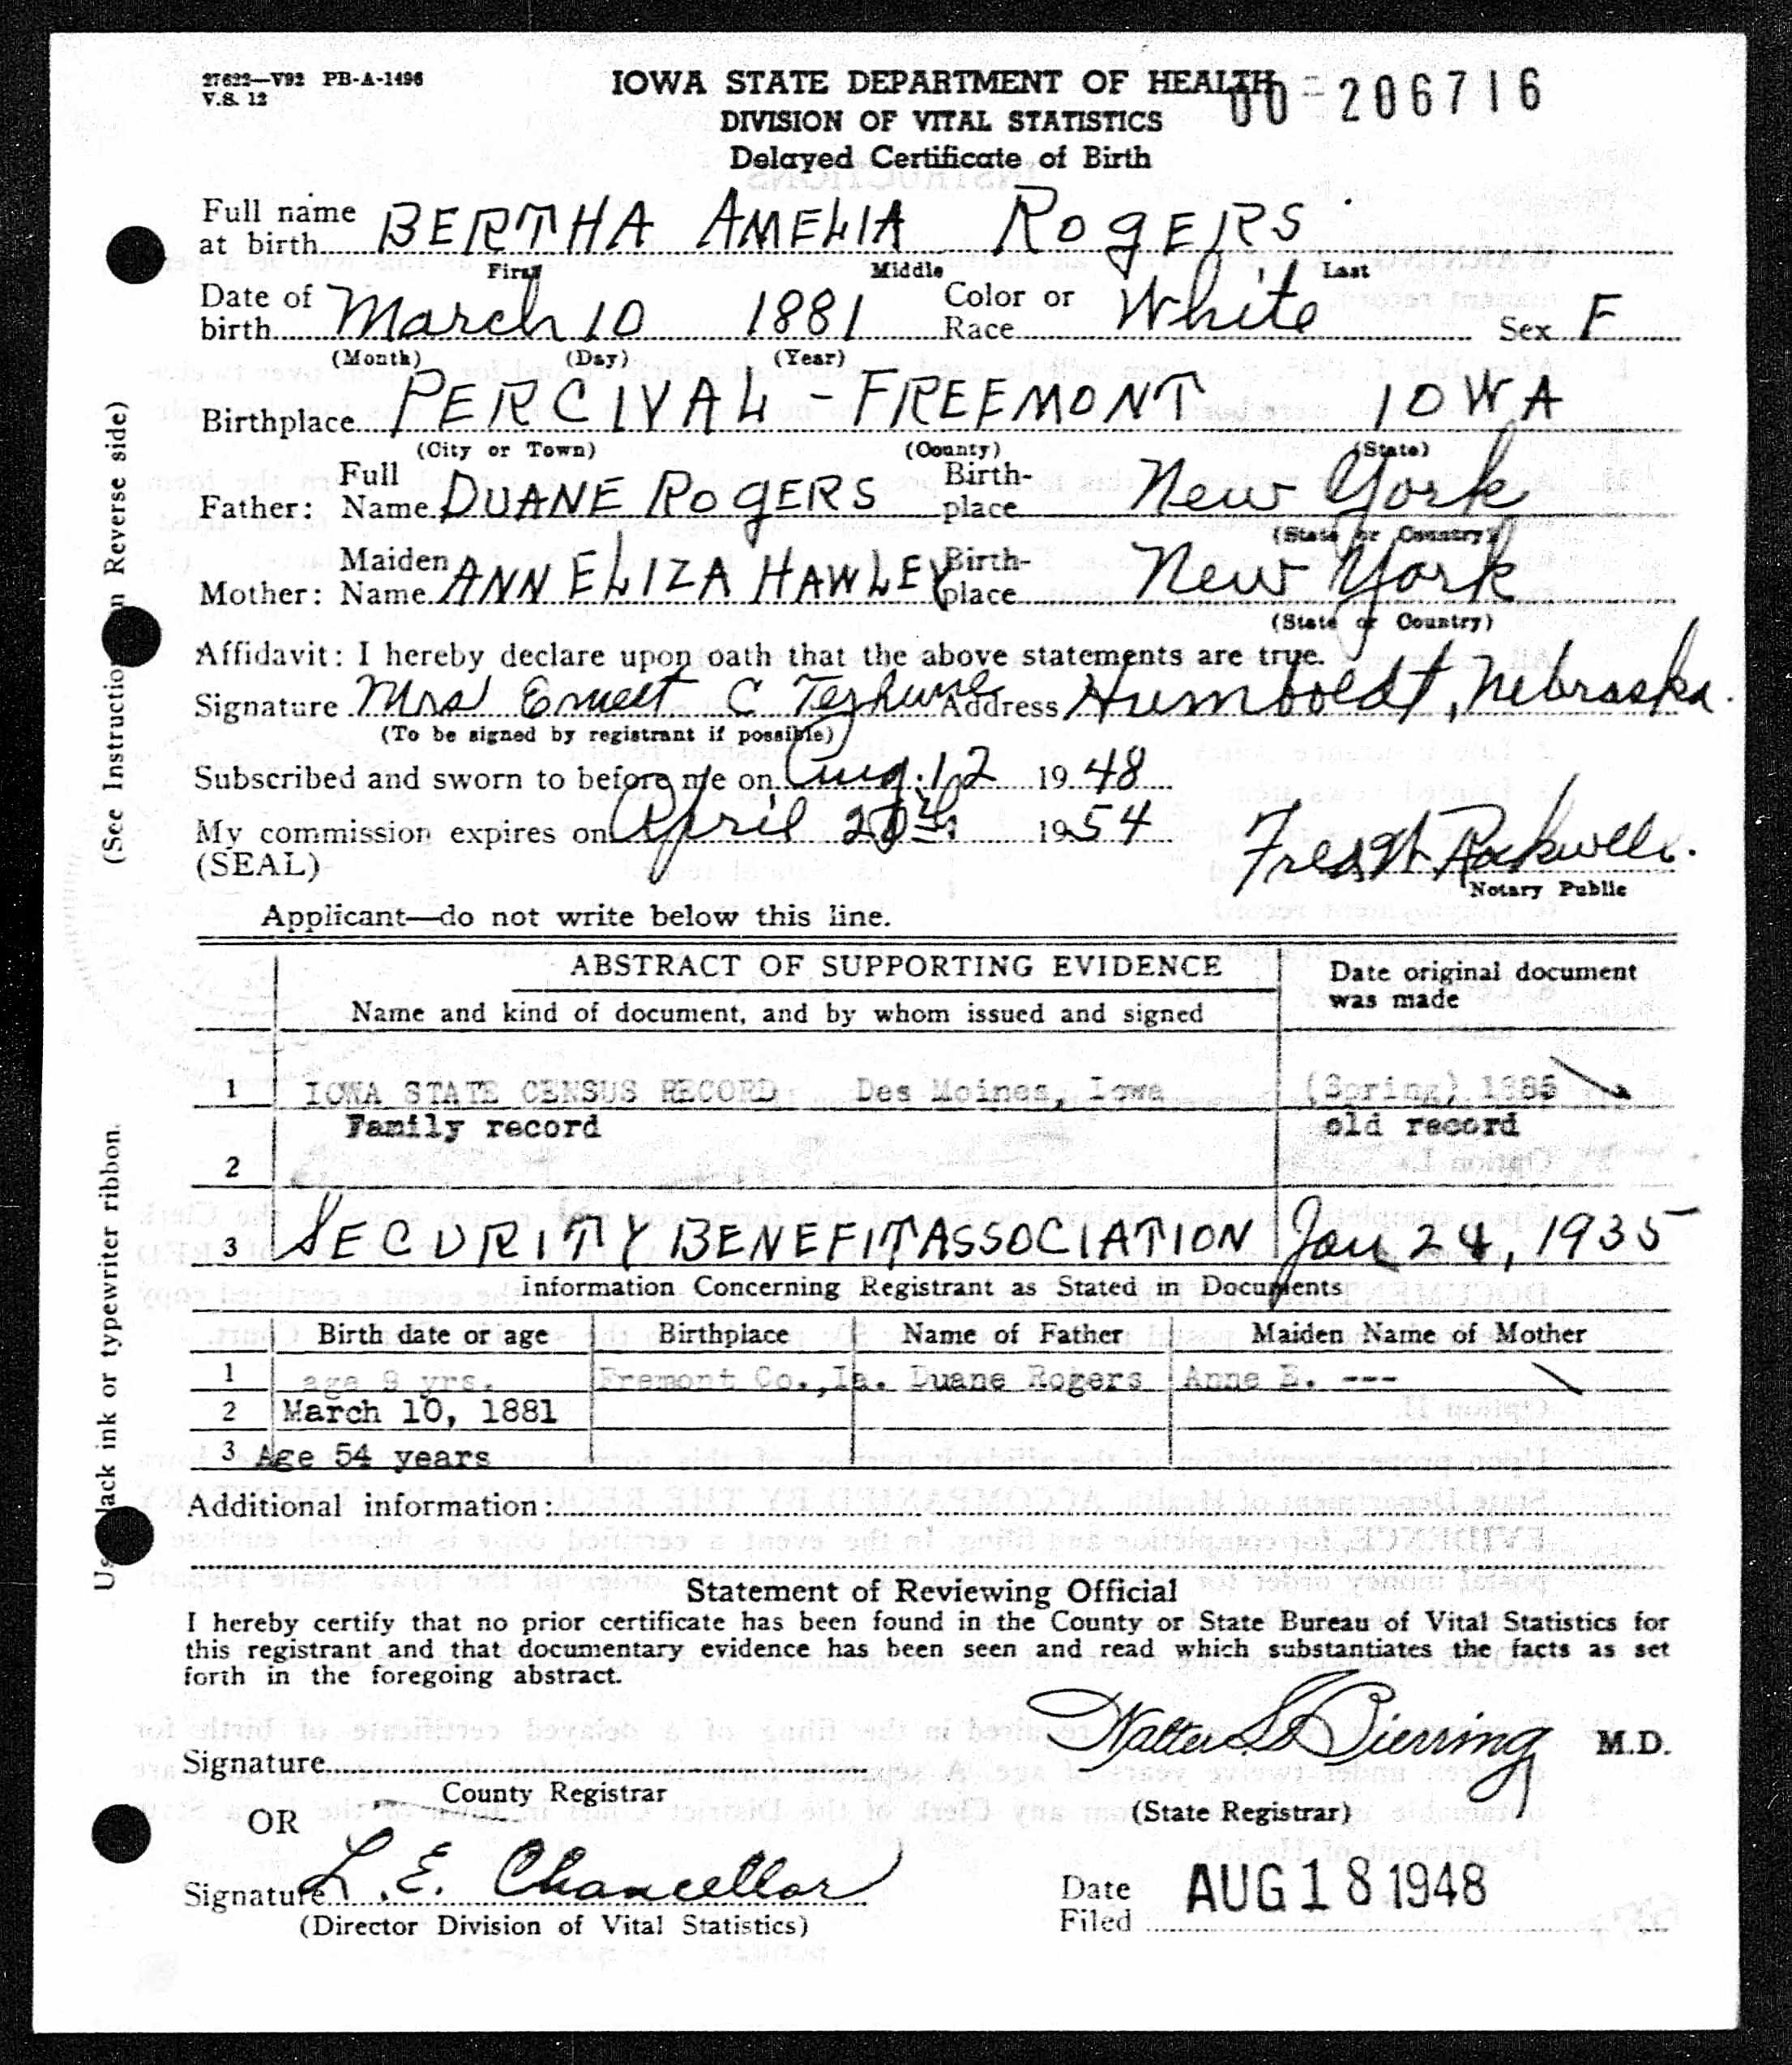 27622—V92 PB-A-1496
V.S. 12
IOWA STATE DEPARTMENT OF HEALTH
00-206716
DIVISION OF VITAL STATISTICS
Delayed Certificate of Birth
Full name at birth BERTHA AMELIA ROGERS
First Middle Last
Date of birth March 10 1881 Color or Race White Sex F
(Month) (Day) (Year)
Birthplace PERCIVAL - FREEMONT IOWA
(City or Town) (County) (State)
Father: Full Name DUANE ROGERS Birth-place New York
(State or Country)
Mother: Maiden Name ANN ELIZA HAWLEY Birth-place New York
(State or Country)
Affidavit: I hereby declare upon oath that the above statements are true.
Signature Mrs Ernest C Terhune Address Humboldt, Nebraska.
(To be signed by registrant if possible)
Subscribed and sworn to before me on Aug. 12 1948
My commission expires on April 20th 1954
(SEAL)
Rockwell.
Notary Public
Applicant—do not write below this line.
ABSTRACT OF SUPPORTING EVIDENCE
Date original document was made
Name and kind of document, and by whom issued and signed
1 IOWA STATE CENSUS RECORD Des Moines, Iowa (Spring)
Family record old record
2
3 SECURITY BENEFIT ASSOCIATION Jan 24, 1935
Information Concerning Registrant as Stated in Documents
Birth date or age Birthplace Name of Father Maiden Name of Mother
1 age yrs. Fremont Co., Ia. Duane Rogers Anne E. ---
2 March 10, 1881
3 Age 54 years
Additional information:
Statement of Reviewing Official
I hereby certify that no prior certificate has been found in the County or State Bureau of Vital Statistics for
this registrant and that documentary evidence has been seen and read which substantiates the facts as set
forth in the foregoing abstract.
Walter L. Bierring M.D.
Signature
County Registrar
(State Registrar)
OR
Signature L. E. Chancellor
(Director Division of Vital Statistics)
Date Filed AUG 18 1948
(See Instruction on Reverse side)
Us lack ink or typewriter ribbon.